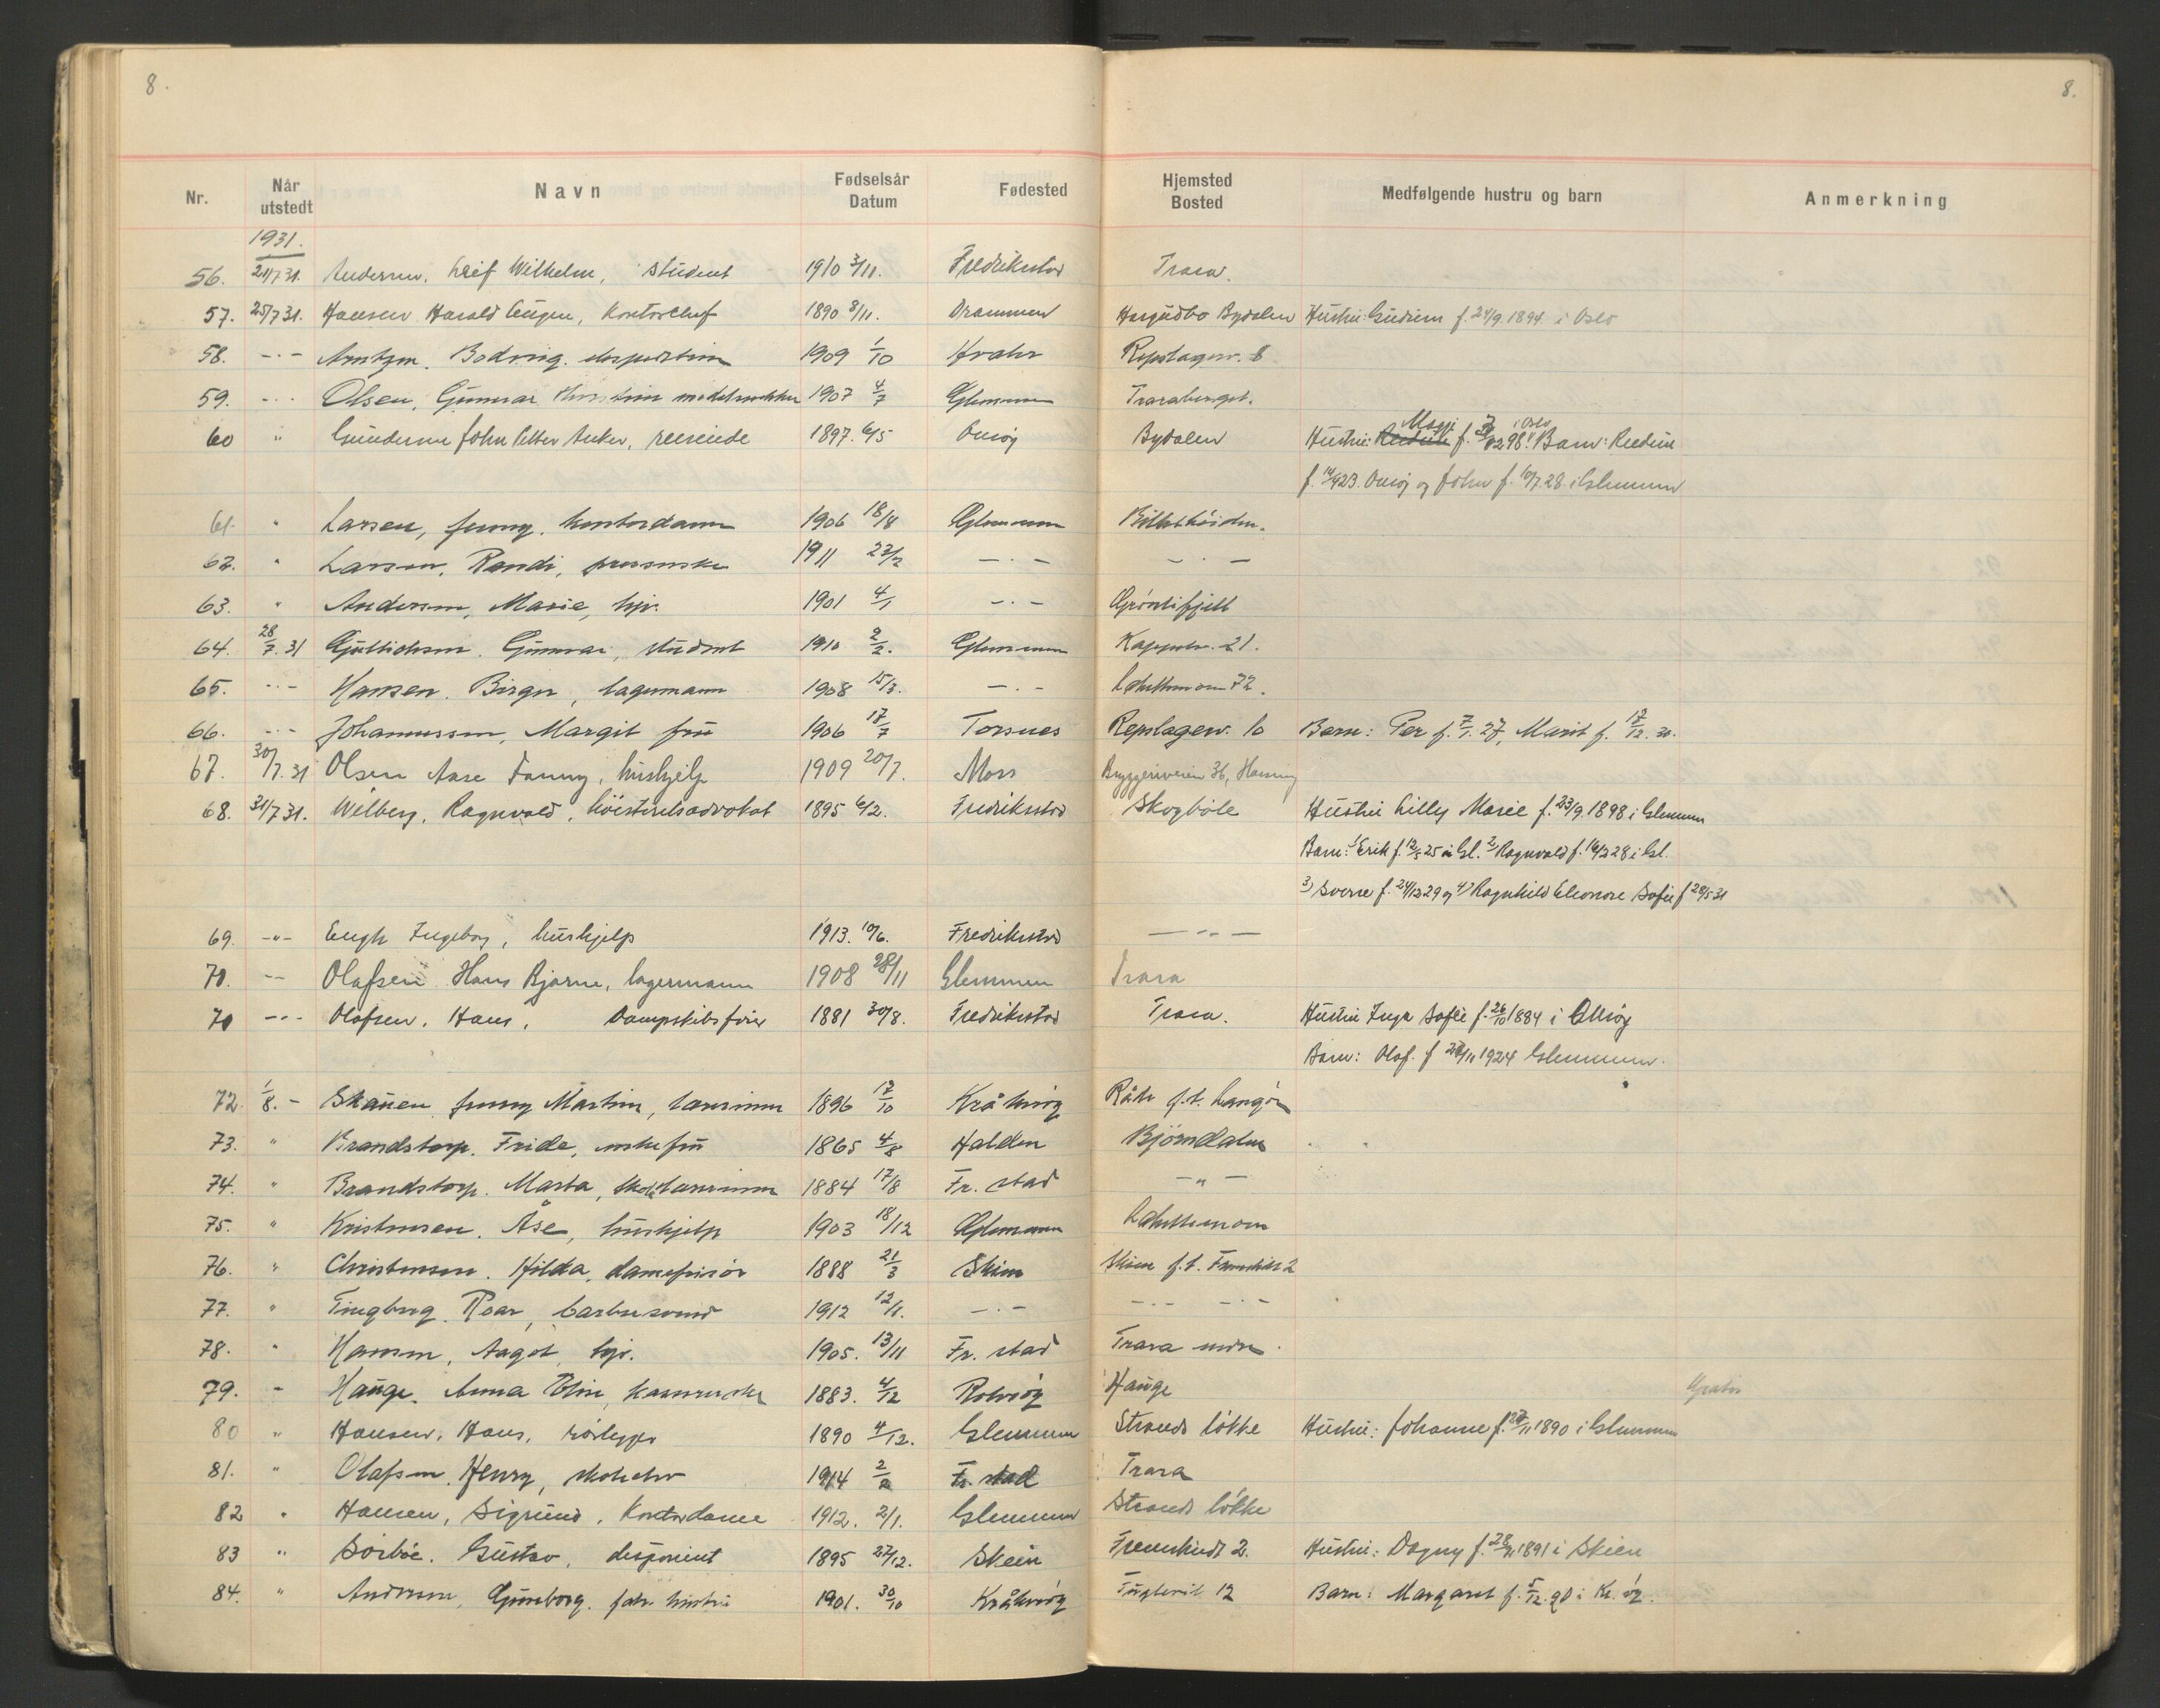 8.
8.
Nr. Når utstedt Navn Fødselsår Datum Fødested Hjemsted Bosted Medfølgende hustru og barn Anmerkning
1931.
56. 21/7 31. Andersen, Leif Wilhelm, student 1910 3/11. Fredrikstad Trara.
57. 25/7 31. Hansen Harald Eugen, Kontorchef 1890 8/11. Drammen Bydalen Hustru: Gudrun f. 24/9 1894 i Oslo
58. -"- Arntzen. Bodvig. 1909 1/10 Hvaler Repslagerv. 8
59. -"- Olsen, Gunnar 1907 4/7 Glemmen Traraberget.
60 " Gundersen John Petter Anker, reisende 1897. 6/5 Onsøy Bydalen Hustru: Magi f. 98 i Oslo Barn: Reidun
f. 14/4 23. Onsøy og John f. 10/7 28 i Glemmen
61. " Larsen, Jenny, kontordame 1906 18/8 Glemmen
62. " Larsen, Randi, 1911 23/2 -"- -"-
63. " Andersen, Marie, hjv. 1901 4/1 -"-
64. 28/7 31 Gunnar, student 1910 2/2. Glemmen Kappelv. 21.
65. -"- Hansen. Birger, lagermann 1908 15/3. -"- 72.
66. -"- Johannessen, Margit fru 1906 17/7 Torsnes Repslagerv. 10 Barn: Per f. 7/1. 27, Marit f. 17/12. 30.
67. 30/7. 31 Olsen Aase Fanny, hushjelp 1909 20/7. Moss Bryggeriveien 36,
68. 31/7 31. Wilberg, Ragnvald, høiesteretsadvokat 1895 6/2. Fredrikstad Skogbøle Hustru Lilly Marie f. 23/9 1898 i Glemmen
Barn: 1) Erik f. 12/5 25 i Gl. 2) Ragnvald f. 16/2 28 i Gl.
3) Sverre f. 24/12 29 og 4) Ragnhild Eleonore Sofie f 28/5 31
69. -"- Engh Ingeborg, hushjelp 1913. 10/6. Fredrikstad -"-
70. -"- Olafsen Hans Bjarne, lagermann 1908 28/11 Glemmen Trara
70 -"- Olafsen, Hans, Dampskibsfører 1881 30/8. Fredrikstad Trara. Hustru Inga Sofie f. 26/10 1884 i Onsøy
Barn: Olaf. f 1924 Glemmen.
72. 1/8. - Skauen Jenny Martine, lærerinne 1896 17/10 Kråkerøy f.t.
73. " Brandstorp. Frida, enkefru 1865 4/8 Halden Bjørndalen
74. " Brandstorp. Marta, lærerinne 1884 17/8 Fr. stad -"-
75. " Kristensen. Åse, hushjelp 1903 18/12 Glemmen
76. " Christensen. Hilda, damefrisør 1888 21/3 Skien Skien f.t. 2
77. " Roar, barbersvend 1912 12/1. -"- -"- -"-
78. " Hansen, Aagot, hjv. 1905. 13/11 Fr. stad Trara nedre
79. " Hauge. Anna 1883. 4/12 Rolvsøy Hauge Gratis
80 " Hansen, Hans, rørlegger 1890 4/12. Glemmen Strands løkke Hustru: Johanne f. 1890 i Glemmen
81. " Olafsen. Henry, skoleelev 1914 2/2 Fr. stad Trara
82 " Hansen, Sigrund, Kontordame 1912. 2/1. Glemmen Strands løkke
83 " Sørbøe. Gustav, disponent 1895 27/12. Skien 2. Hustru: Dagny f. 1891 i Skien
84. " Andersen, Gunborg. 1901. 30/10 Kråkerøy 12 Barn: Margaret f. 5/12. 20 i Kr. øy.